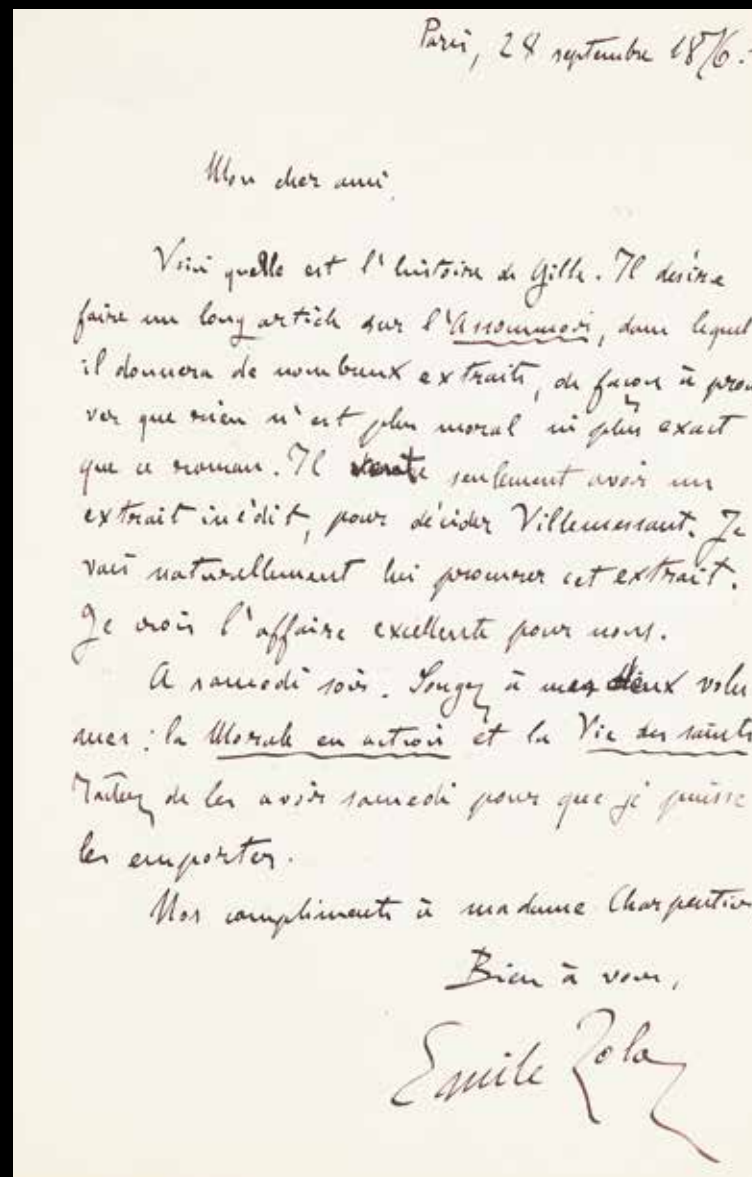 Paris, 28 septembre 1876.
Mon cher ami,
Voici quelle est l'histoire de Gille. Il désire
faire un long article sur l'Assommoir, dans lequel
il donnera de nombreux extraits, de façon à prou
ver que rien n'est plus moral ni plus exact
que ce roman. Il seulement avoir un
extrait inédit, pour décider Villemessant. Je
vais naturellement lui procurer cet extrait.
Je crois l'affaire excellente pour nous.
A samedi soir. Songez à mes deux volu
mes : la Morale en action et la Vie des saints
Tâchez de les avoir samedi pour que je puisse
les emporter.
Nos compliments à madame Charpentier
Bien à vous,
Emile Zola